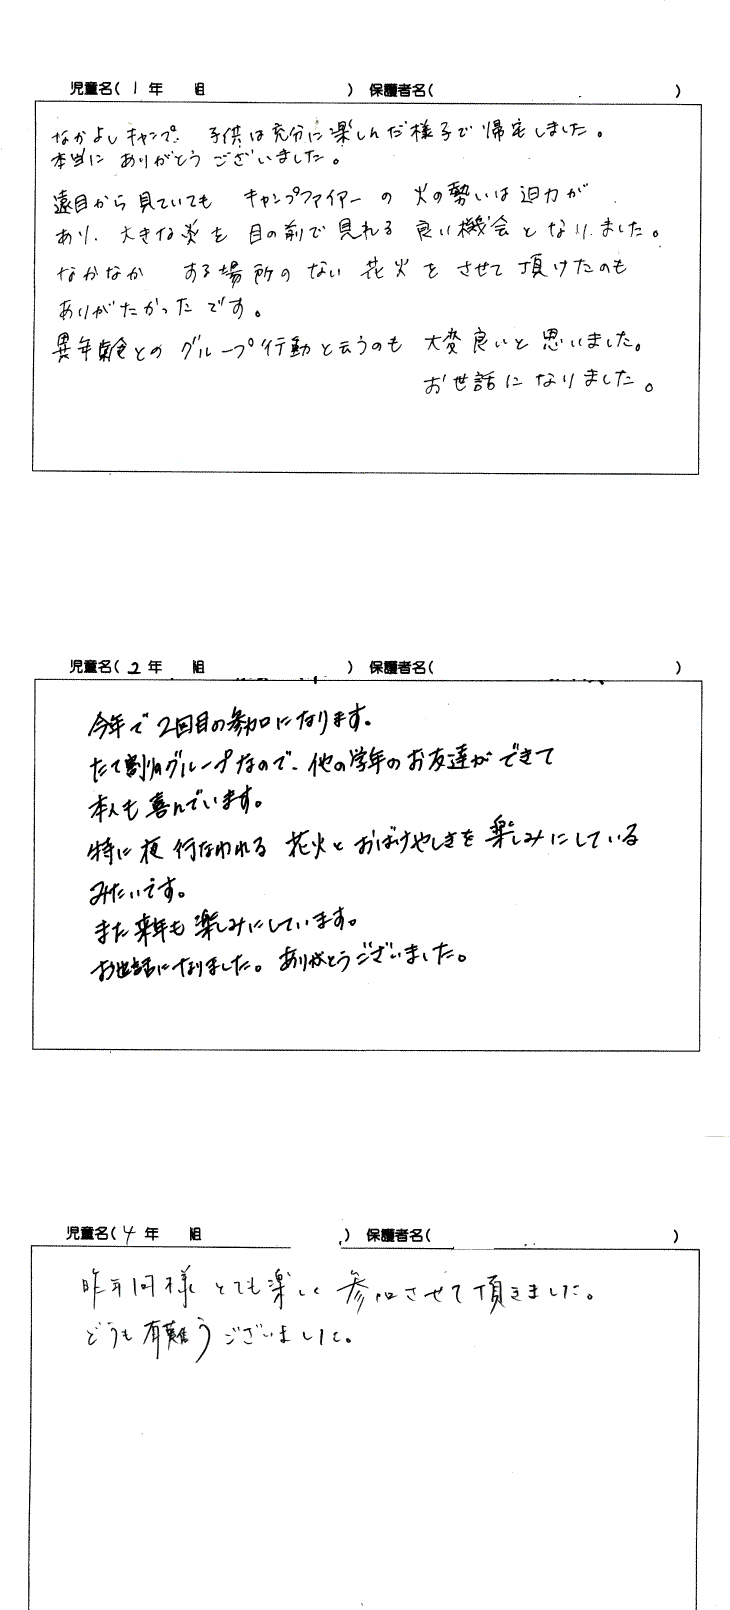 児童名( 1 年 組 ) 保護者名( )
なかよしキャンプ、 子供は充分に楽しんだ様子で帰宅しました。
本当に ありがとうございました。
遠目から見ていても キャンプファイアーの 火の勢いは迫力が
あり、大きな炎を 目の前で見れる 良い機会となりました。
なかなか する場所のない 花火を させて頂けたのも
ありがたかったです。
異年齢とのグループ行動と云うのも 大変良いと思いました。
お世話になりました。
児童名( 2 年 組 ) 保護者名( )
今年で2回目の参加になります。
たて割りグループなので、他の学年のお友達ができて
本人も喜んでいます。
特に夜行なわれる 花火とおばけやしきを楽しみにしている
みたいです。
また来年も楽しみにしています。
お世話になりました。ありがとうございました。
児童名( 4 年 組 ) 保護者名( )
昨年同様とても楽しく参加させて頂きました。
どうも有難うございました。